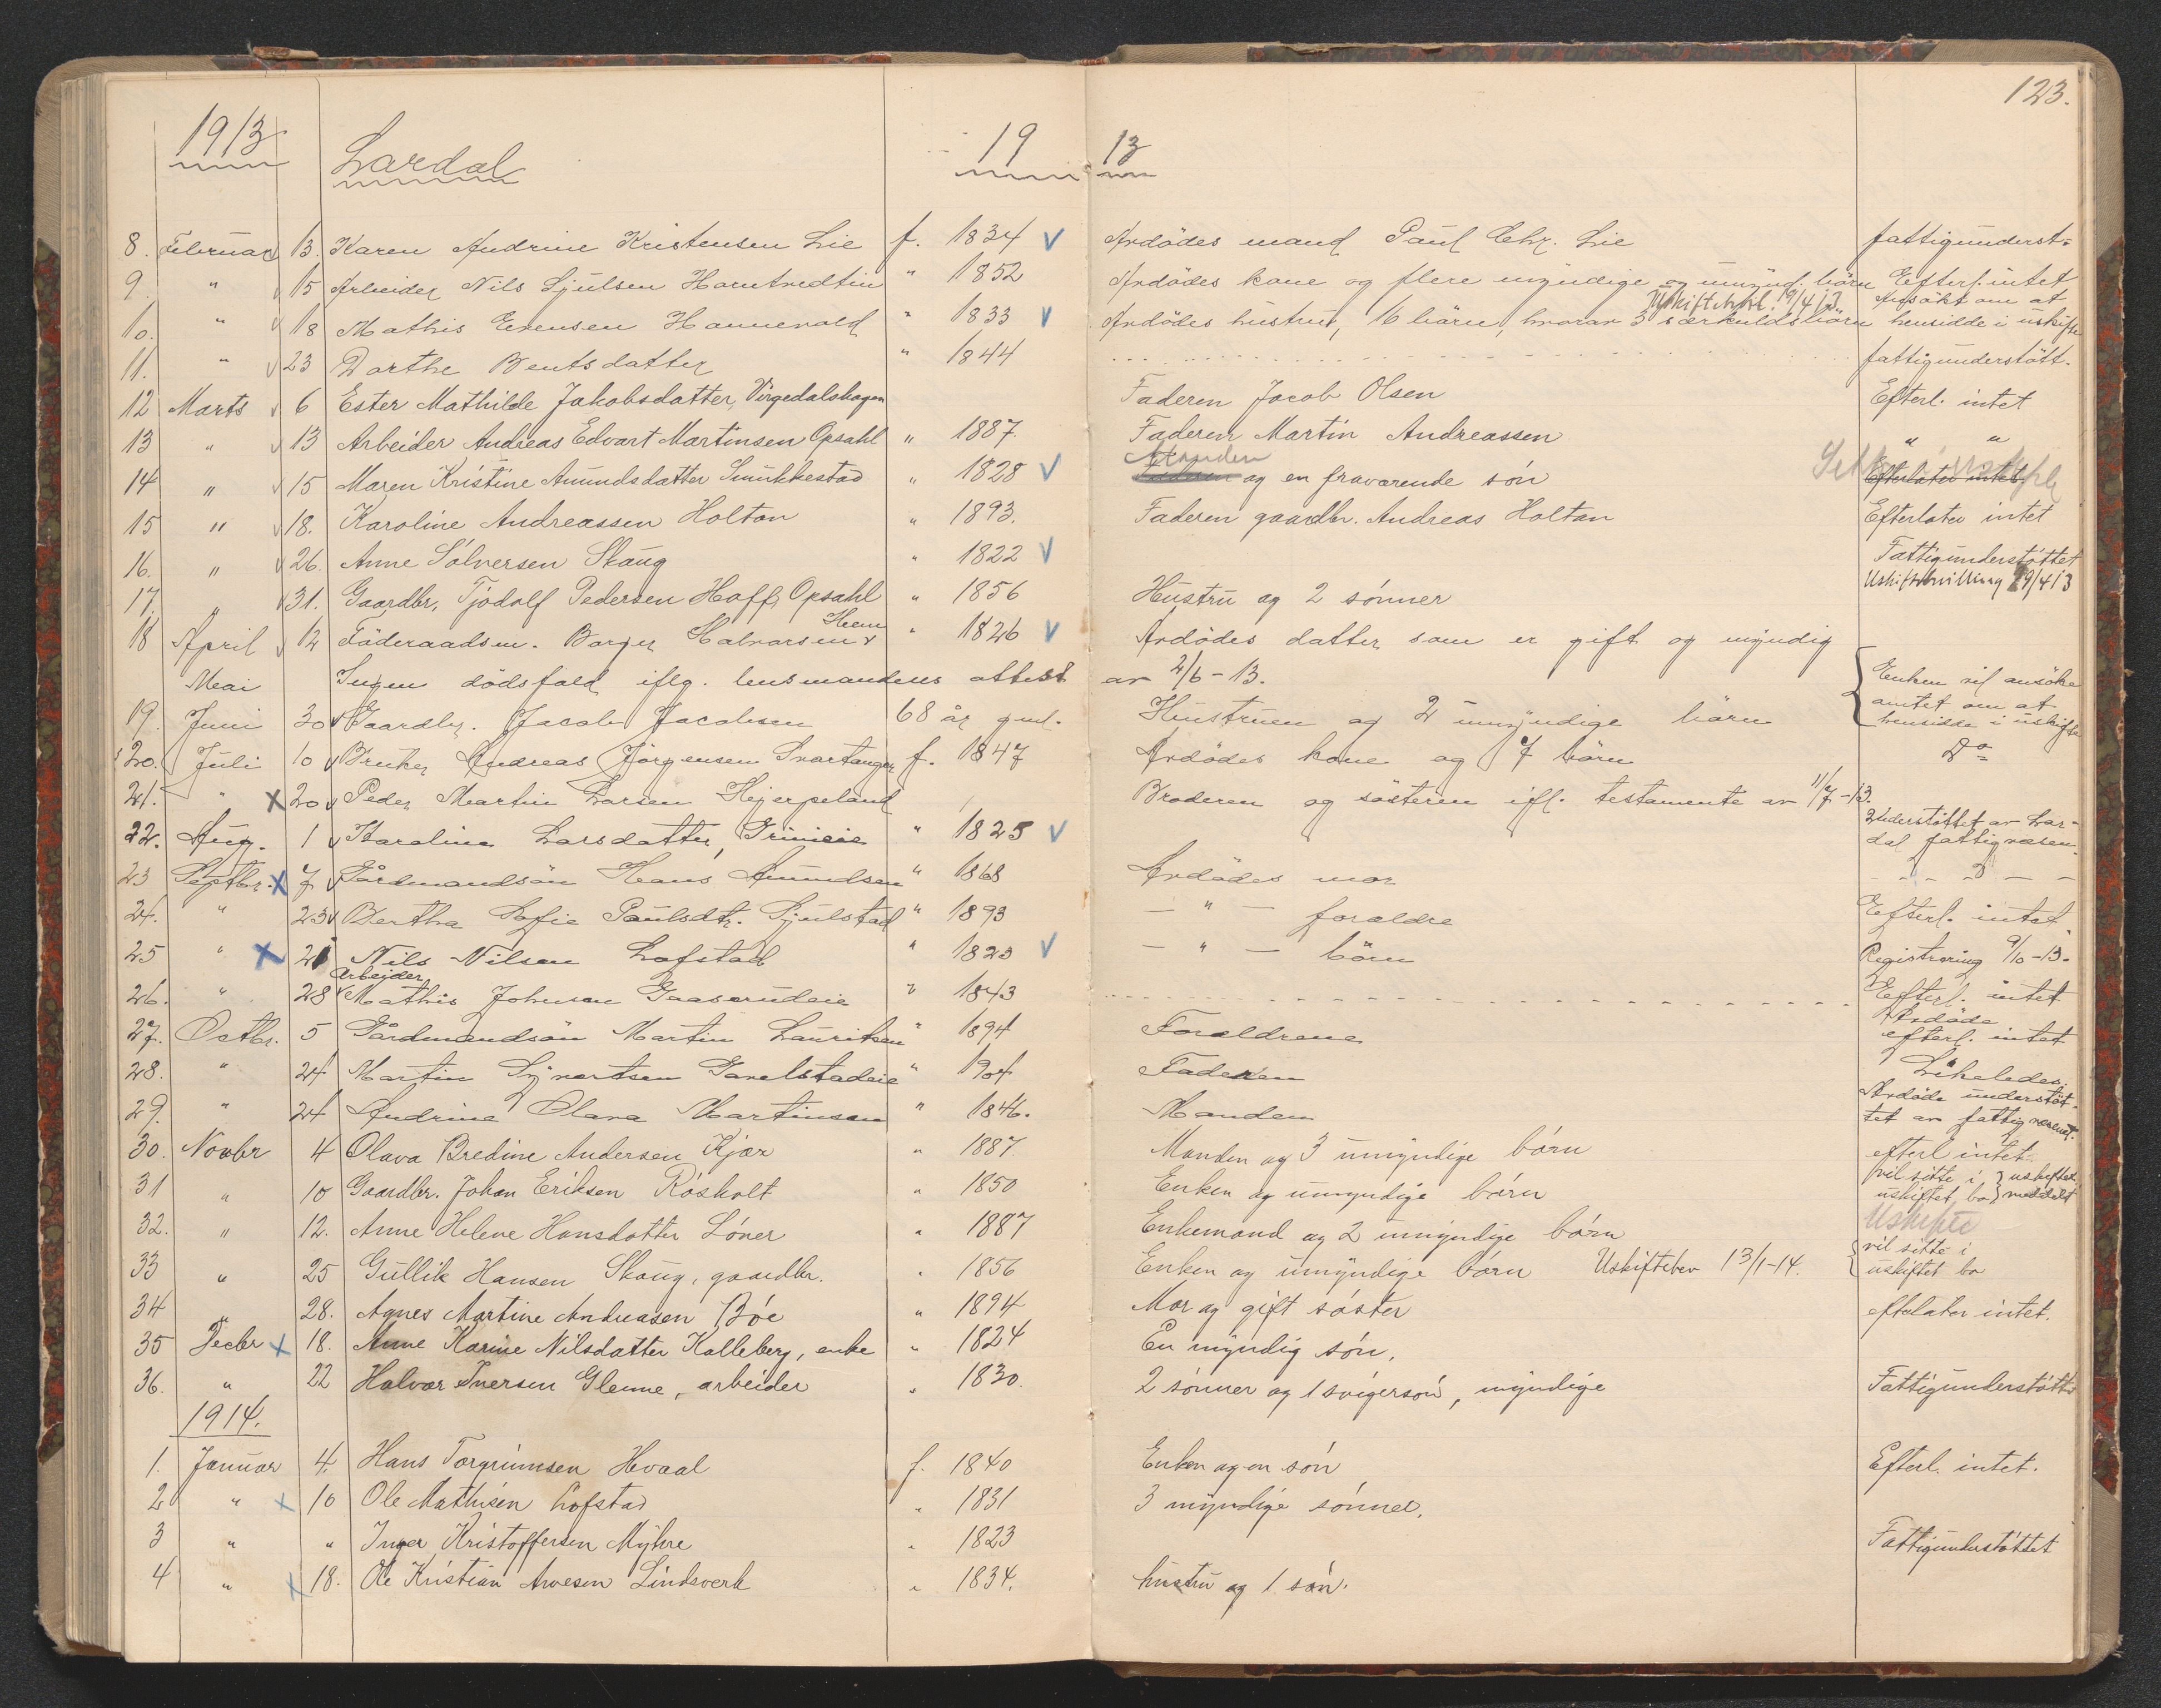 123.
1913 Lardal 19 13
8. Februar 13. Karen Andrine Kristensen Lie f. 1834 v Avdödes mand Paul Chr. Lie fattigunderst.
9 " v 15 Arbeider Nils Sjulsen " 1852 Avdödes kone og flere myndige og umynd. börn Efterl. intet
10. " v 18 Mathis Evensen Hannevold " 1833 v Avdödes hustru, 16 börn, hvorav 3 særkuldsbörn Uskiftebvl. 19/4 13. Ansökt om at hensidde i uskifte
11. " v 23 Dorthe Bentsdatter " 1844 fattigunderstött.
12 Marts v 6 Ester Mathilde Jakobsdatter, Virgedalshagen Faderen Jacob Olsen Efterl. intet
13 " v 13 Arbeider Andreas Edvart Martinsen Opsahl " 1887. Faderen Martin Andreassen " "
14 " v 15 Maren Kristine Amundsdatter Smukkestad " 1828 v Manden og en fraværende sön Efterlater intet
15 " v 18. Karoline Andreassen Holtan " 1893. Faderen gaardbr. Andreas Holtan Efterlater intet
16. " v 26. Anne Sölversen Skaug " 1822 v Fattigunderstöttet
17. " v 31. Gaardbr. Tjodolf Pedersen Hoff, Opsahl " 1856 Hustru og 2 sönner Uskiftebevilling 19/4 13
18 April v 12 Föderaadsm. Borger Halvorsen Heum " 1826 v Avdödes datter som er gift og myndig
Mai Ingen dödsfald iflg. lensmandens attest av 2/6 - 13.
19. Juni 30 v Gaardbr. Jacob Jacobsen 68 år gml. Hustruen og 2 umyndige börn { Enken vil ansöke amtet om at hensidde i uskifte
20. Juli 10 v Bruker Andreas Jörgensen Svartangen f. 1847 Avdödes kone og 7 börn Do
21. " x 20 v Peder Martin Larsen Hejerpeland Broderen og sösteren ifl. testamente av 11/7 - 13.
22. Aug. 1 v Karoline Larsdatter, " 1825 v Understöttet av Lardal fattigvæsen.
23 Septbr. x 7 v Gårdmandsön Hans Amundsen " 1868 Avdödes mor
24. " 23 v Bertha Sofie Paulsdtr. Sjulstad " 1893 — " — forældre Efterl. intet.
25 " x 21 Nils Nilsen Lofstad " 1823 v — " — börn Registrering 9/10 - 13.
26. " 28 v Arbejder Mathis Johnsen Gaaserudeie " 1843 Efterl. intet
27. Octbr. 5 Gårdmandsön Martin Lauritsen " 1894 Forældrene Avdöde efterl. intet
28. " 24 Martin Syvertsen Gavelstadeie " 1904 Faderen Likeledes.
29. " 24 Andrine Olava Martinsen " 1846. Manden Avdöde understöttet av fattigvæsenet.
30. Novbr 4 Olava Bredine Andersen Kjær " 1887. Manden og 3 umyndige börn efterl intet.
31 " 10 Gaardbr. Johan Eriksen Rösholt " 1850 Enken og umyndige börn vil sitte i uskiftet bo } uskiftet meddelt
32. " 12. Anne Helene Hansdatter Löner " 1887 Enkemand og 2 umyndige börn Uskifte
33 " 25 Gullik Hansen Skaug, gaardbr. " 1856 Enken og umyndige börn Uskiftebev 13/1-14. { vil sitte i uskiftet bo
34 " 28. Agnes Martine Andreasen Böe " 1894 Mor og gift söster efterlater intet.
35 Decbr x 18. Anne Karine Nilsdatter Kalleberg, enke " 1824 En myndig sön.
36. " 22 Halvor Iversen Glenne, arbeider " 1830. 2 sönner og 1 svigersön, myndige Fattigunderstöttet
1914.
1. Januar 4. Hans Torgrimsen Hvaal f. 1840 Enken og en sön Efterl. intet.
2 " x 10 Ole Mathisen Lofstad " 1831 3 myndige sönner.
3 " " Inger Kristoffersen Myhre " 1823 Fattigunderstöttet
4 " x 18. Ole Kristian Arvesen Lindsverk " 1834. hustru og 1 sön.